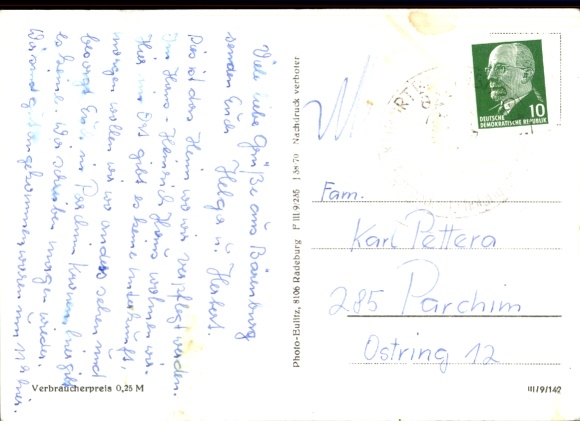 Viele liebe Grüße aus Bärenburg
senden Euch Helga u. Herbert.
Dies ist das Heim wo wir verpflegt werden.
Im Haus - Heinrich Heine wohnen wir.
Hier im Ort gibt es keine Unterkunft,
morgen wollen wir wo anders sehen und
besorgt Euch in Parchim Kronen, hier gibt
es keine. Wir schreiben morgen wieder.
Wir sind gut angekommen, waren um Uhr hier.
Verbraucherpreis 0,25 M
Photo-Bulitz, 8106 Radeburg P III/9/285 Nachdruck verboten
DEUTSCHE
DEMOKRATISCHE REPUBLIK
10
Fam.
Karl Pettera
285 Parchim
Ostring 12
III/9/142